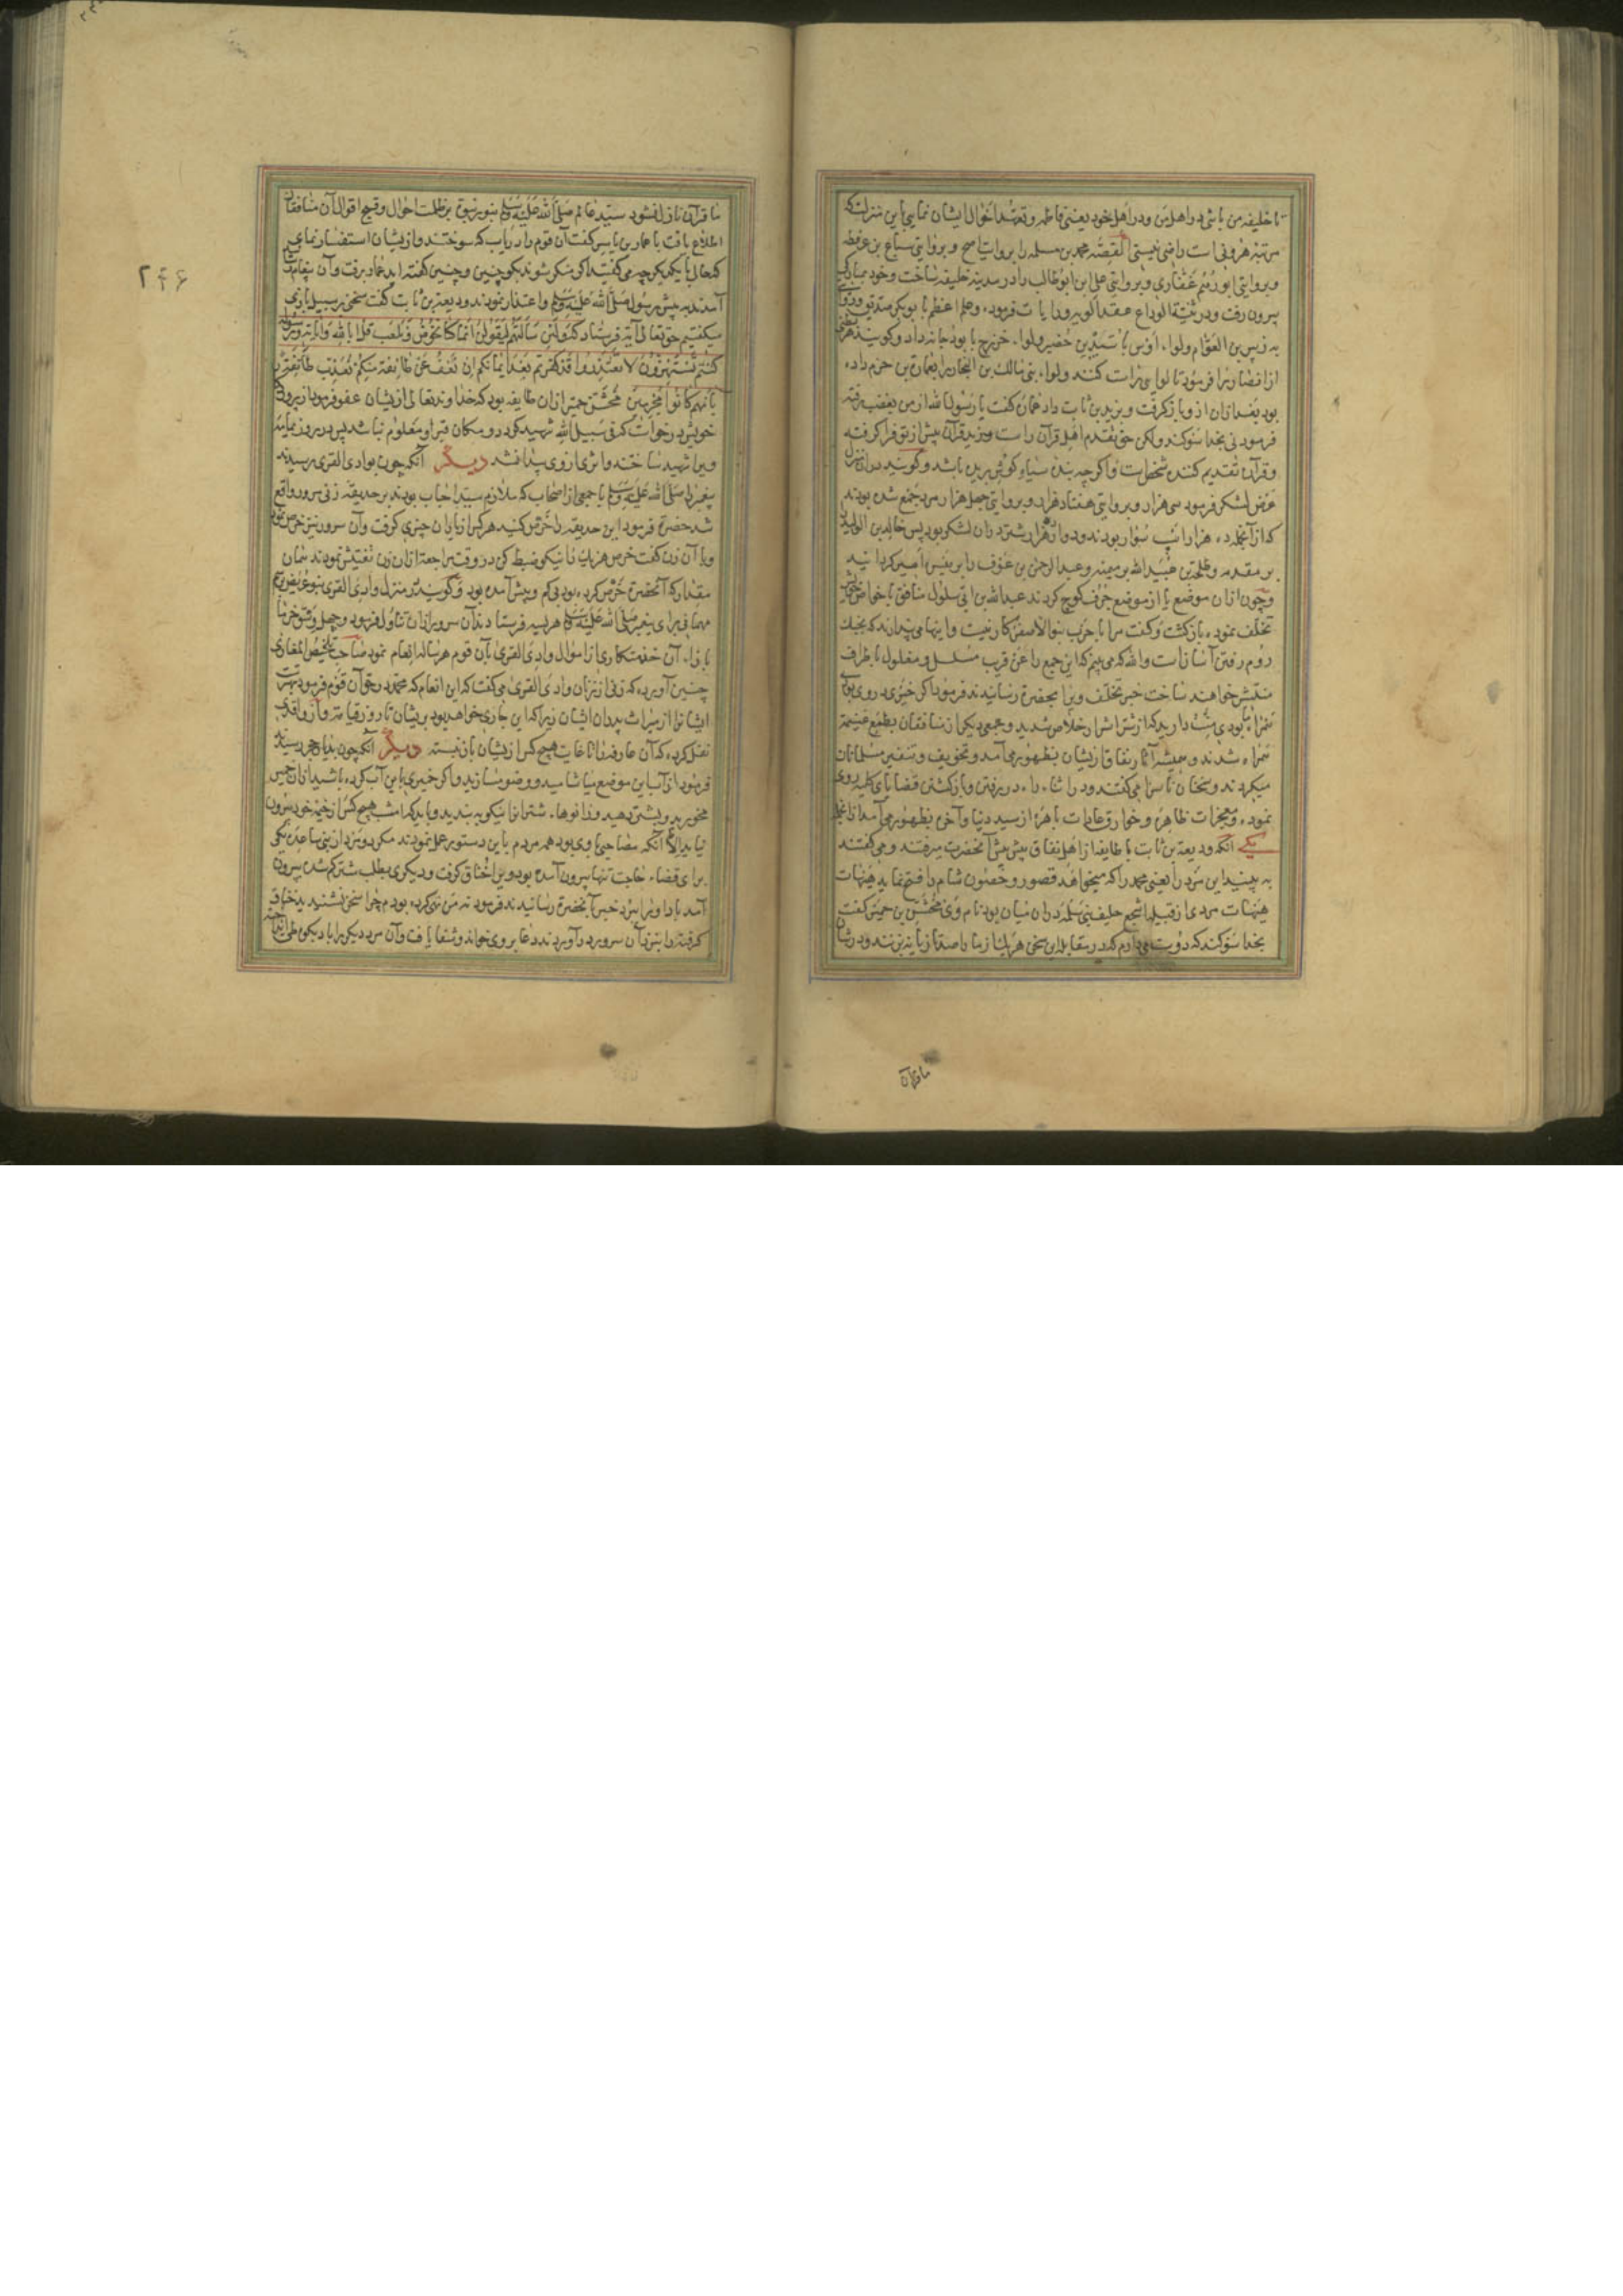 تا خلیفه من باشی در اهل من و در اهل خود یعنی فاطمه و تعهد احوال ایشان نمایی باین منزلت که
مرتبه هرونی است راضی نیستی القصه محمد بن مسلمه را بروایت اصح و بروایتی سباع بن عرفطه
و بروایتی ابورهم غفاری و بروایتی علی ابن ابوطالب را در مدینه خلیفه ساخت و خود بمبارکی
بیرون رفت و در ثنیة الوداع عقد الویه و رایات فرموده و علم اعظم با بوبکر صدیق
به زبیر بن العوام و لواء اوس با سید بن حضیر و لواء خزرج با بودجانه داد و گویند هر
از انصار را فرمود تا لوایی راست کنند و لواء بنی مالک بن النجار را بعمارة بن حزم داده
بود بعد ازان ازو بازگرفت و بزید بن ثابت داد عماره گفت یا رسول الله از من بغضب رفته
فرمود نی بخدا سوگند ولکن حق تقدم اهل قرآن راست و زید قرآن بیش از تو فرا گرفته
و قرآن تقدیم کننده شخص است و اگرچه بنده سیاه گوش بریده باشد و گویند دران منزل
عرض لشکر فرمود سی هزار و بروایتی هفتاد هزار و بروایتی چهل هزار مرد جمع شده بودند
که از آنجمله ده هزار اسب سوار بودند و دوازده هزار شتر دران لشکر بود پس خالد بن الولید
بر مقدمه و طلحة بن عبیدالله بر میمنه و عبدالرحمن بن عوف را بر میسره امیر گردانید
و چون ازان موضع یا از موضع جرف کوچ کردند عبدالله بن ابی سلول منافق با خواص خویش
تخلف نموده بازگشت و گفت مرا با حرب بنو الاصفر کار نیست و اینها می پندارند که بجنک
روم رفتن آسان است والله که می بینم که این جمع را عن قریب مسلسل و مغلول باطراف
منتشر خواهند ساخت خبر تخلف ویرا بحضرت رسانیدند فرمود اگر خیری در وی بودی
تخلف ننمودی منت دارید که از شر اشرار خلاص شدید و جمعی دیگر از منافقان بطمع غنیمت
همراه شدند و همیشه آثار نفاق از ایشان بظهور می آمد و تخویف و تنفیر مسلمانان
میکردند و سخنان ناسزا می گفتند و در اثناء راه در رفتن و بازگشتن قضایای کلیه روی
نموده و معجزات ظاهره و خوارق عادات باهره از سید دنیا و آخرت بظهور می آمد از آنجمله
یکی آنکه ودیعة بن ثابت با طایفه از اهل نفاق پیش پیش آنحضرت میرفتند و می گفتند
به بینید این مرد را یعنی محمد را که میخواهد قصور و حصون شام را فتح نماید هیهات
هیهات مردی از قبیله اشجع حلیف بنی سلمه دران میان بود نام وی مخشی بن حمیر گفت
بخدا سوگند که دوست می دارم که در مقابله این سخن هر یک از ما را صد تازیانه بزنند و در شان
ما قرآن
ما قرآن نازل نشود سید عالم صلی الله علیه وسلم بنور نبوت بر ظلمت احوال و قبح اقوال آن منافقان
اطلاع یافت با عمار بن یاسر گفت آن قوم را دریاب که سوختند و از ایشان استفسار نمای
که حال با یکدیگر چه می گفتید اگر منکر شوند بگو چنین و چنین گفته اید عمار برفت و آن پیغام
آمدند به پیش رسول صلی الله علیه وسلم و اعتذار نمودند و ودیعة بن ثابت گفت سخنی بر سبیل بازی
میگفتیم حق تعالی آیه فرستاد که ولئن سألتهم لیقولن انما کنا نخوض ونلعب قل ابالله وآیاته ورسوله
کنتم تستهزؤن لا تعتذروا قد کفرتم بعد ایمانکم ان نعف عن طائفة منکم نعذب طائفة
بانهم کانوا مجرمین مخشی بن حمیر ازان طایفه بود که خداوند تعالی از ایشان عفو فرمود از پروردگار
خویش درخواست که فی سبیل الله شهید گردد و مکان قبر او معلوم نباشد پس در روز یمامه
ویرا شهید ساختند و اثری از وی پیدا نشد دیگر آنکه چون بوادی القری رسیدند
پیغمبر صلی الله علیه وسلم با جمعی از اصحاب که ملازم سید احباب بودند بر حدیقه زنی مرور واقع
شد حضرت فرمود این حدیقه را خرص کنید هر کس از یاران چیزی گرفت و آن سرور نیز خرص نمود
و با آن زن گفت خرص هر یک را نیکو ضبط کن در وقت مراجعت ازان زن تفتیش نمودند همان
مقدار که آنحضرت خرص کرده بود بی کم و بیش آمده بود و گویند در منزل وادی القری بنو عریض
مهمانی برای پیغمبر صلی الله علیه وسلم هریسه فرستادند آن سرور ازان تناول فرمود و چهل وسق خرما
بازاء آن خدمتکاری از اموال وادی القری بآن قوم هر ساله انعام نمود صاحب تلخیص المغازی
چنین آورده که زنی از زنان وادی القری می گفت که این انعام که محمد در حق آن قوم فرمود بهتر
ایشانرا از میراث پدران ایشان زیرا که این جاری خواهد بود بر ایشان تا روز قیامت و از واقدی
نقل کرده که آن عارفه را تا غایت هیچ کس از ایشان باز نبسته دیگر آنکه چون بدیار حجر رسیدند
فرمود از آب این موضع میاشامید و وضو مسازید و اگر خمیری باین آب کرده باشید ازان خمیر
مخورید و بشتر دهید و زانوهاء شتران را نیکو به بندید و باید که امشب هیچ کس از خیمه خود بیرون
نیاید الا آنکه مصاحبی با وی بود همه مردم باین دستور عمل نمودند مگر دو مرد از بنی ساعده یکی
برای قضاء حاجت تنها بیرون آمده بود ویرا خناق گرفت و دیگری بطلب شتر گم شده بیرون
آمد باد او را ببرد خبر بآنحضرت رسانیدند فرمود نه من نهی کرده بودم چرا سخن نشنیدید خناق
گرفته را بنزد آن سرور در آوردند دعا بر وی خواند و شفا یافت و آن مرد دیگر را باد بکوه طی
۲۴۶